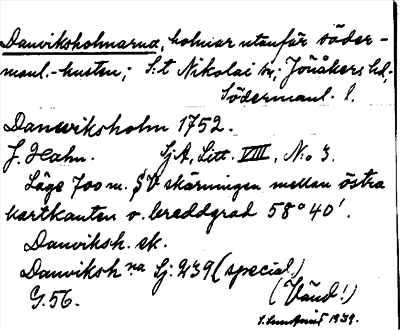 Danviksholmarna, holmar utanför söder-
manl.-kusten; S:t Nikolai sn; Jönåkers hd,
Södermanl. l.
Danwiksholm 1752.
J. Hahn. SjA, Litt. VIII, N:o 3.
Läge 700 m. SV skärningen mellan östra
kartkanten o. breddgrad 58° 40'.
Danviksh. sk.
Danviksh na Sj: 239 (special)
G. 56. (Vänd!)
1939.